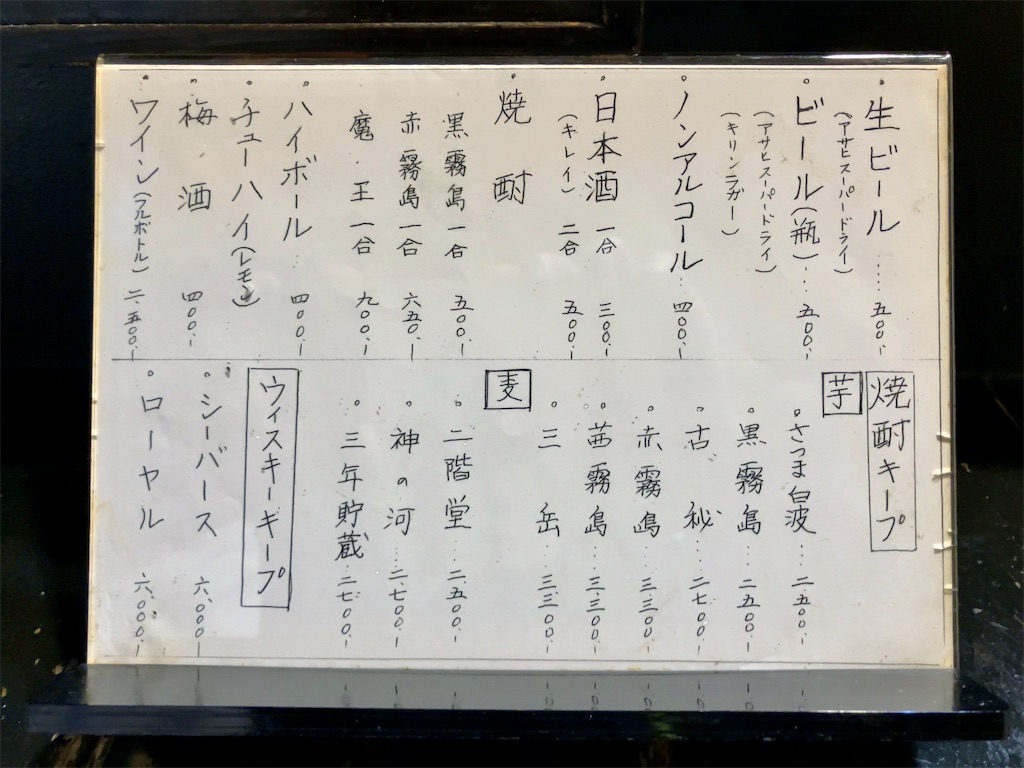 生ビール‥‥五〇〇.-
(アサヒスーパードライ)
ビール(瓶)‥‥五〇〇.-
(アサヒスーパードライ)
(キリンラガー)
ノンアルコール‥四〇〇.-
日本酒 一合 三〇〇.-
(キレイ) 二合 五〇〇.-
焼酎
黒霧島 一合 五〇〇.-
赤霧島 一合 六五〇.-
魔王 一合 九〇〇.-
ハイボール‥四〇〇.-
チューハイ(レモン)
梅酒 四〇〇.-
ワイン(フルボトル) 二.五〇〇.-
焼酎キープ
芋
さつま白波‥‥二.五〇〇.-
黒霧島‥‥二.五〇〇.-
古秘‥‥二.七〇〇.-
赤霧島‥‥三.三〇〇.-
茜霧島‥‥三.三〇〇.-
三岳‥‥三.三〇〇.-
麦
二階堂‥‥二.五〇〇.-
神の河‥‥二.七〇〇.-
三年貯蔵‥‥二.七〇〇.-
ウィスキーキープ
シーバース 六.〇〇〇.-
ローヤル 六.〇〇〇.-